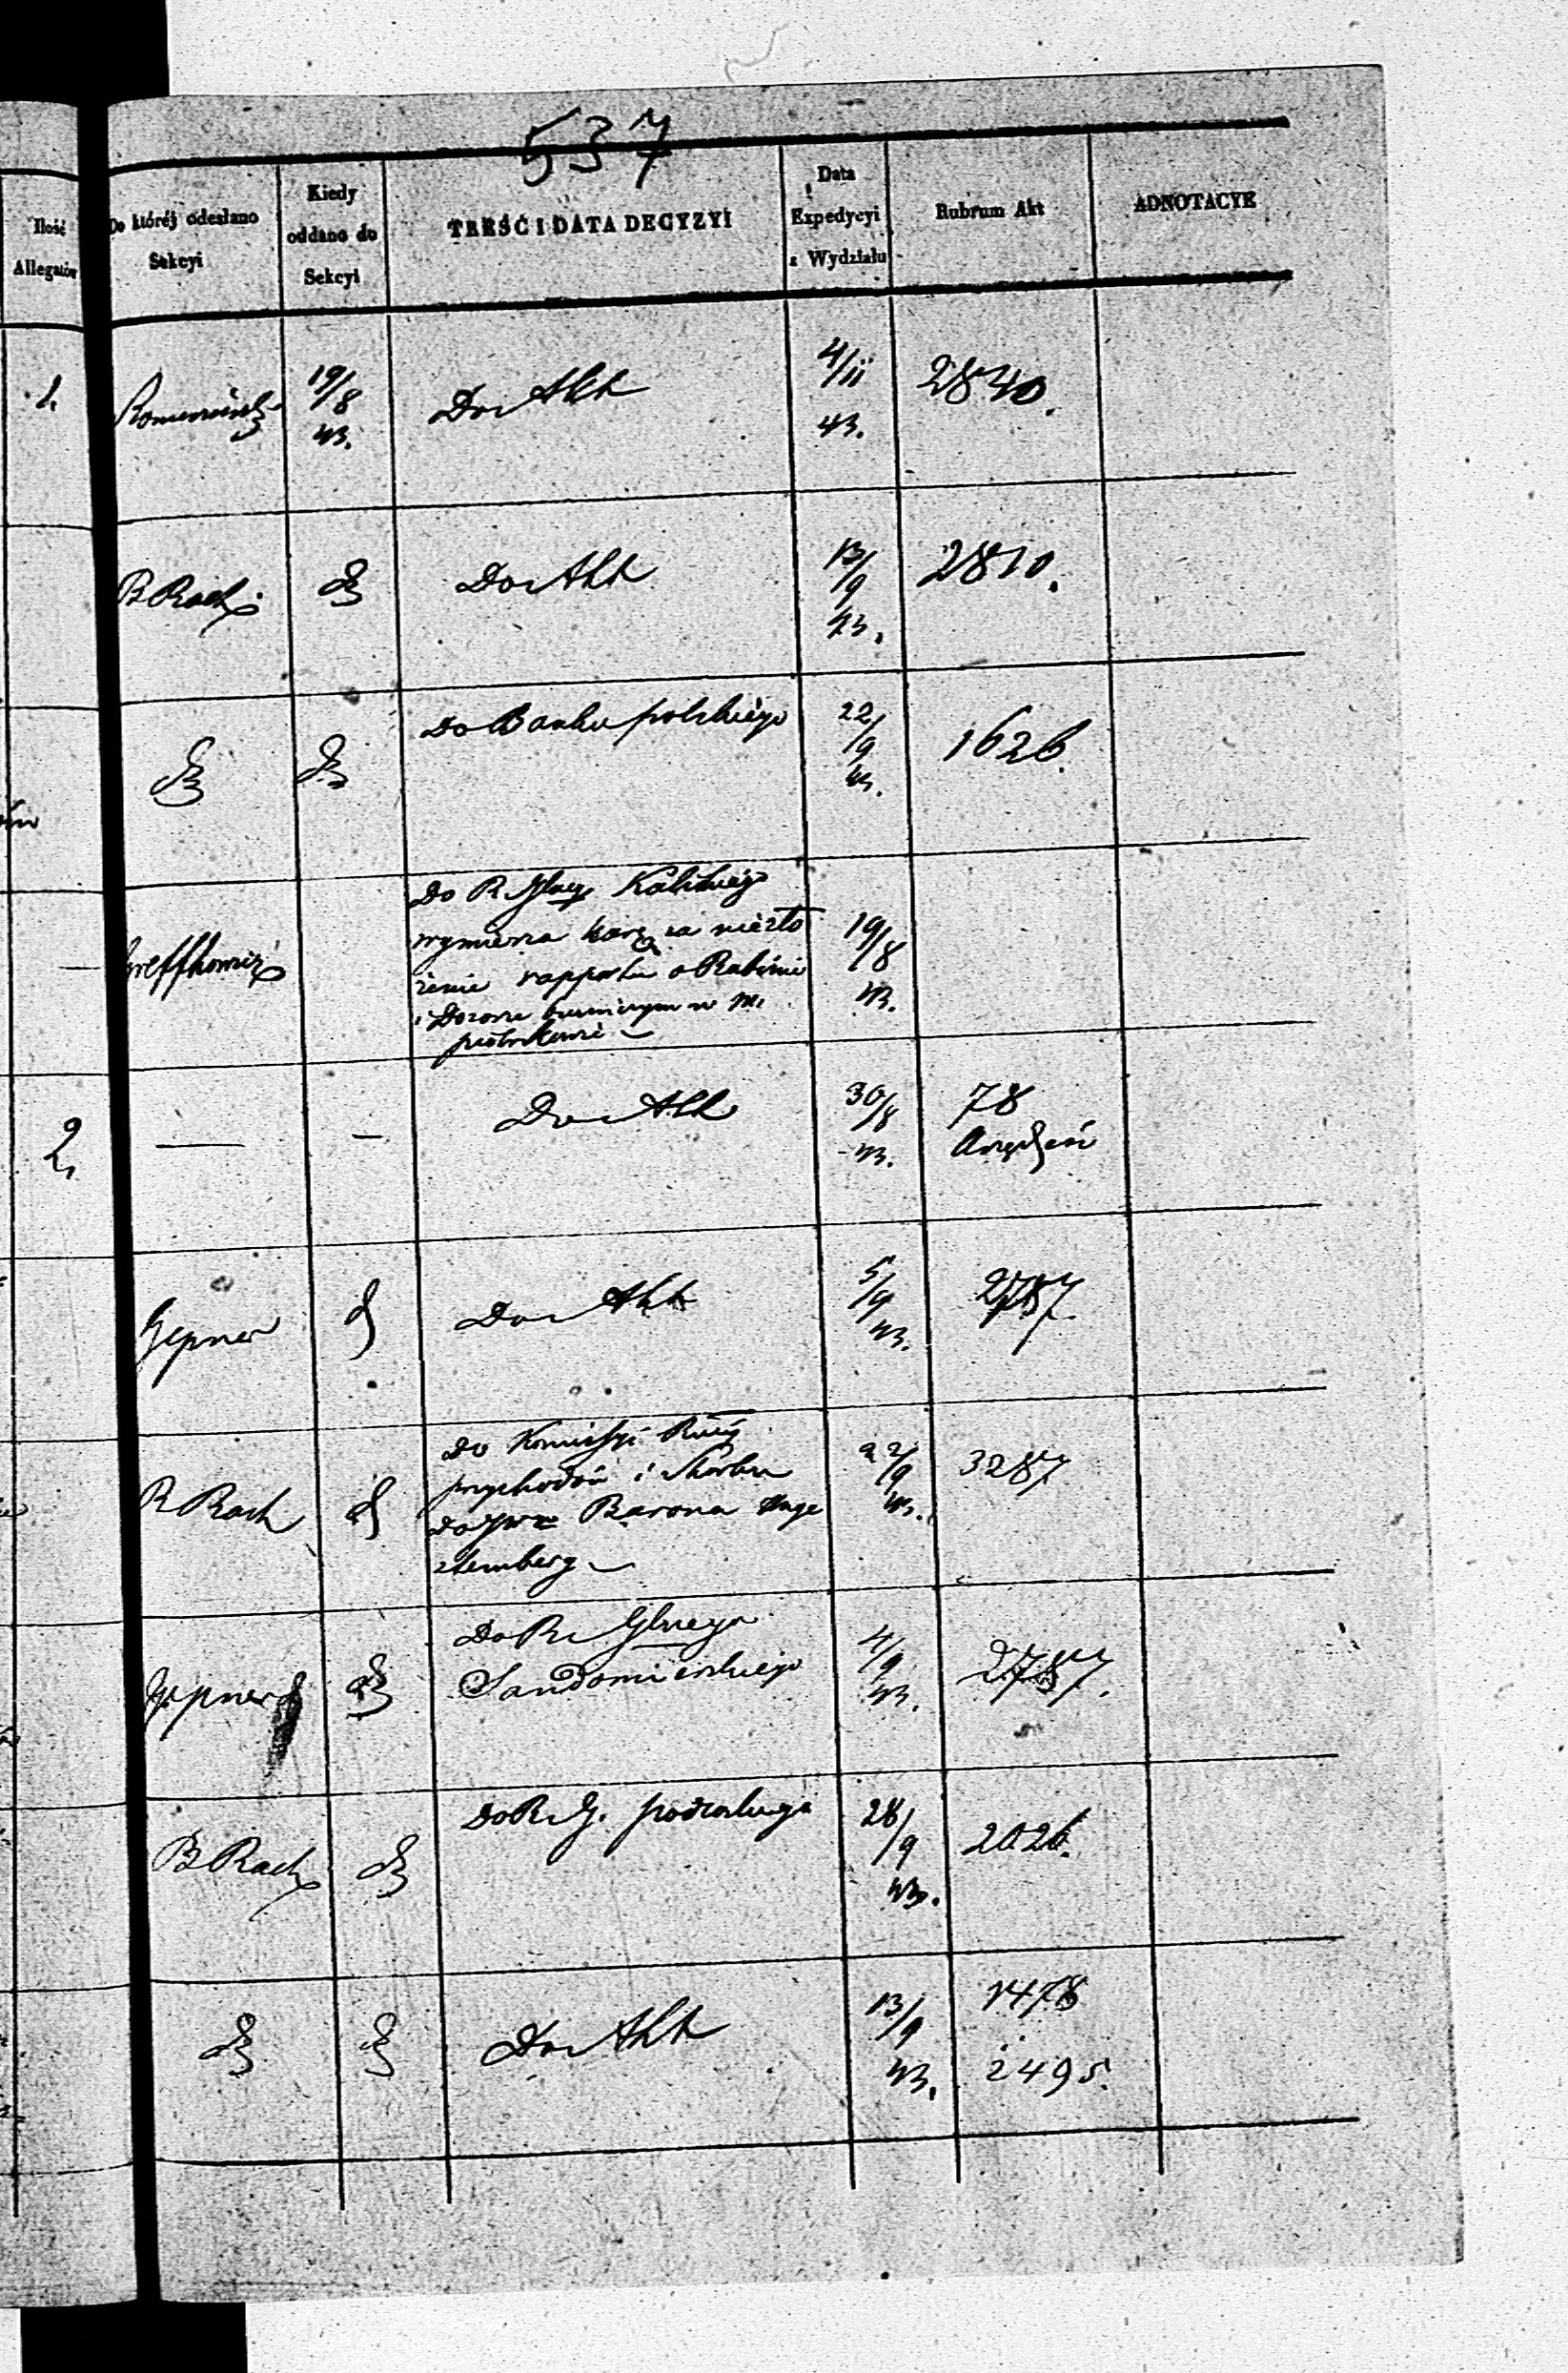 537
Ilość
Allegatów
Do któréj odesłano
Sekcyi
Kiedy
oddano do
Sekcyi
TREŚĆ I DATA DECYZYI
Data
Expedycyi
z Wydziału
Rubrum Akt
ADNOTACYE
1.
19/8
43.
Do Akt
4/11
43.
2840.
B Rach.
Do Akt
13/9
43.
2810.
Do Banku polskiégo
22/9
43.
1626.
Do R Glneg Kaliskiego
wymierza karę za niezło
żenie rapportu o Rabinie
i Dozorze bużniczym w m.
piotrkowie
19/8
43.
2.
—
—
Do Akt
30/8
43.
78
Gepner
Do Akt
5/9
43.
2787.
B Rach
do Komissyi Rząd
przychodów i Skarbu
do Barona
22/9
43.
3287
Gepner
Do R. Glnego
Sandomierskiego
4/9
43.
2787.
B Rach
Do R. G. podlaskiego
28/9
43.
2026.
Do Akt
13/9
43.
1478
2495.